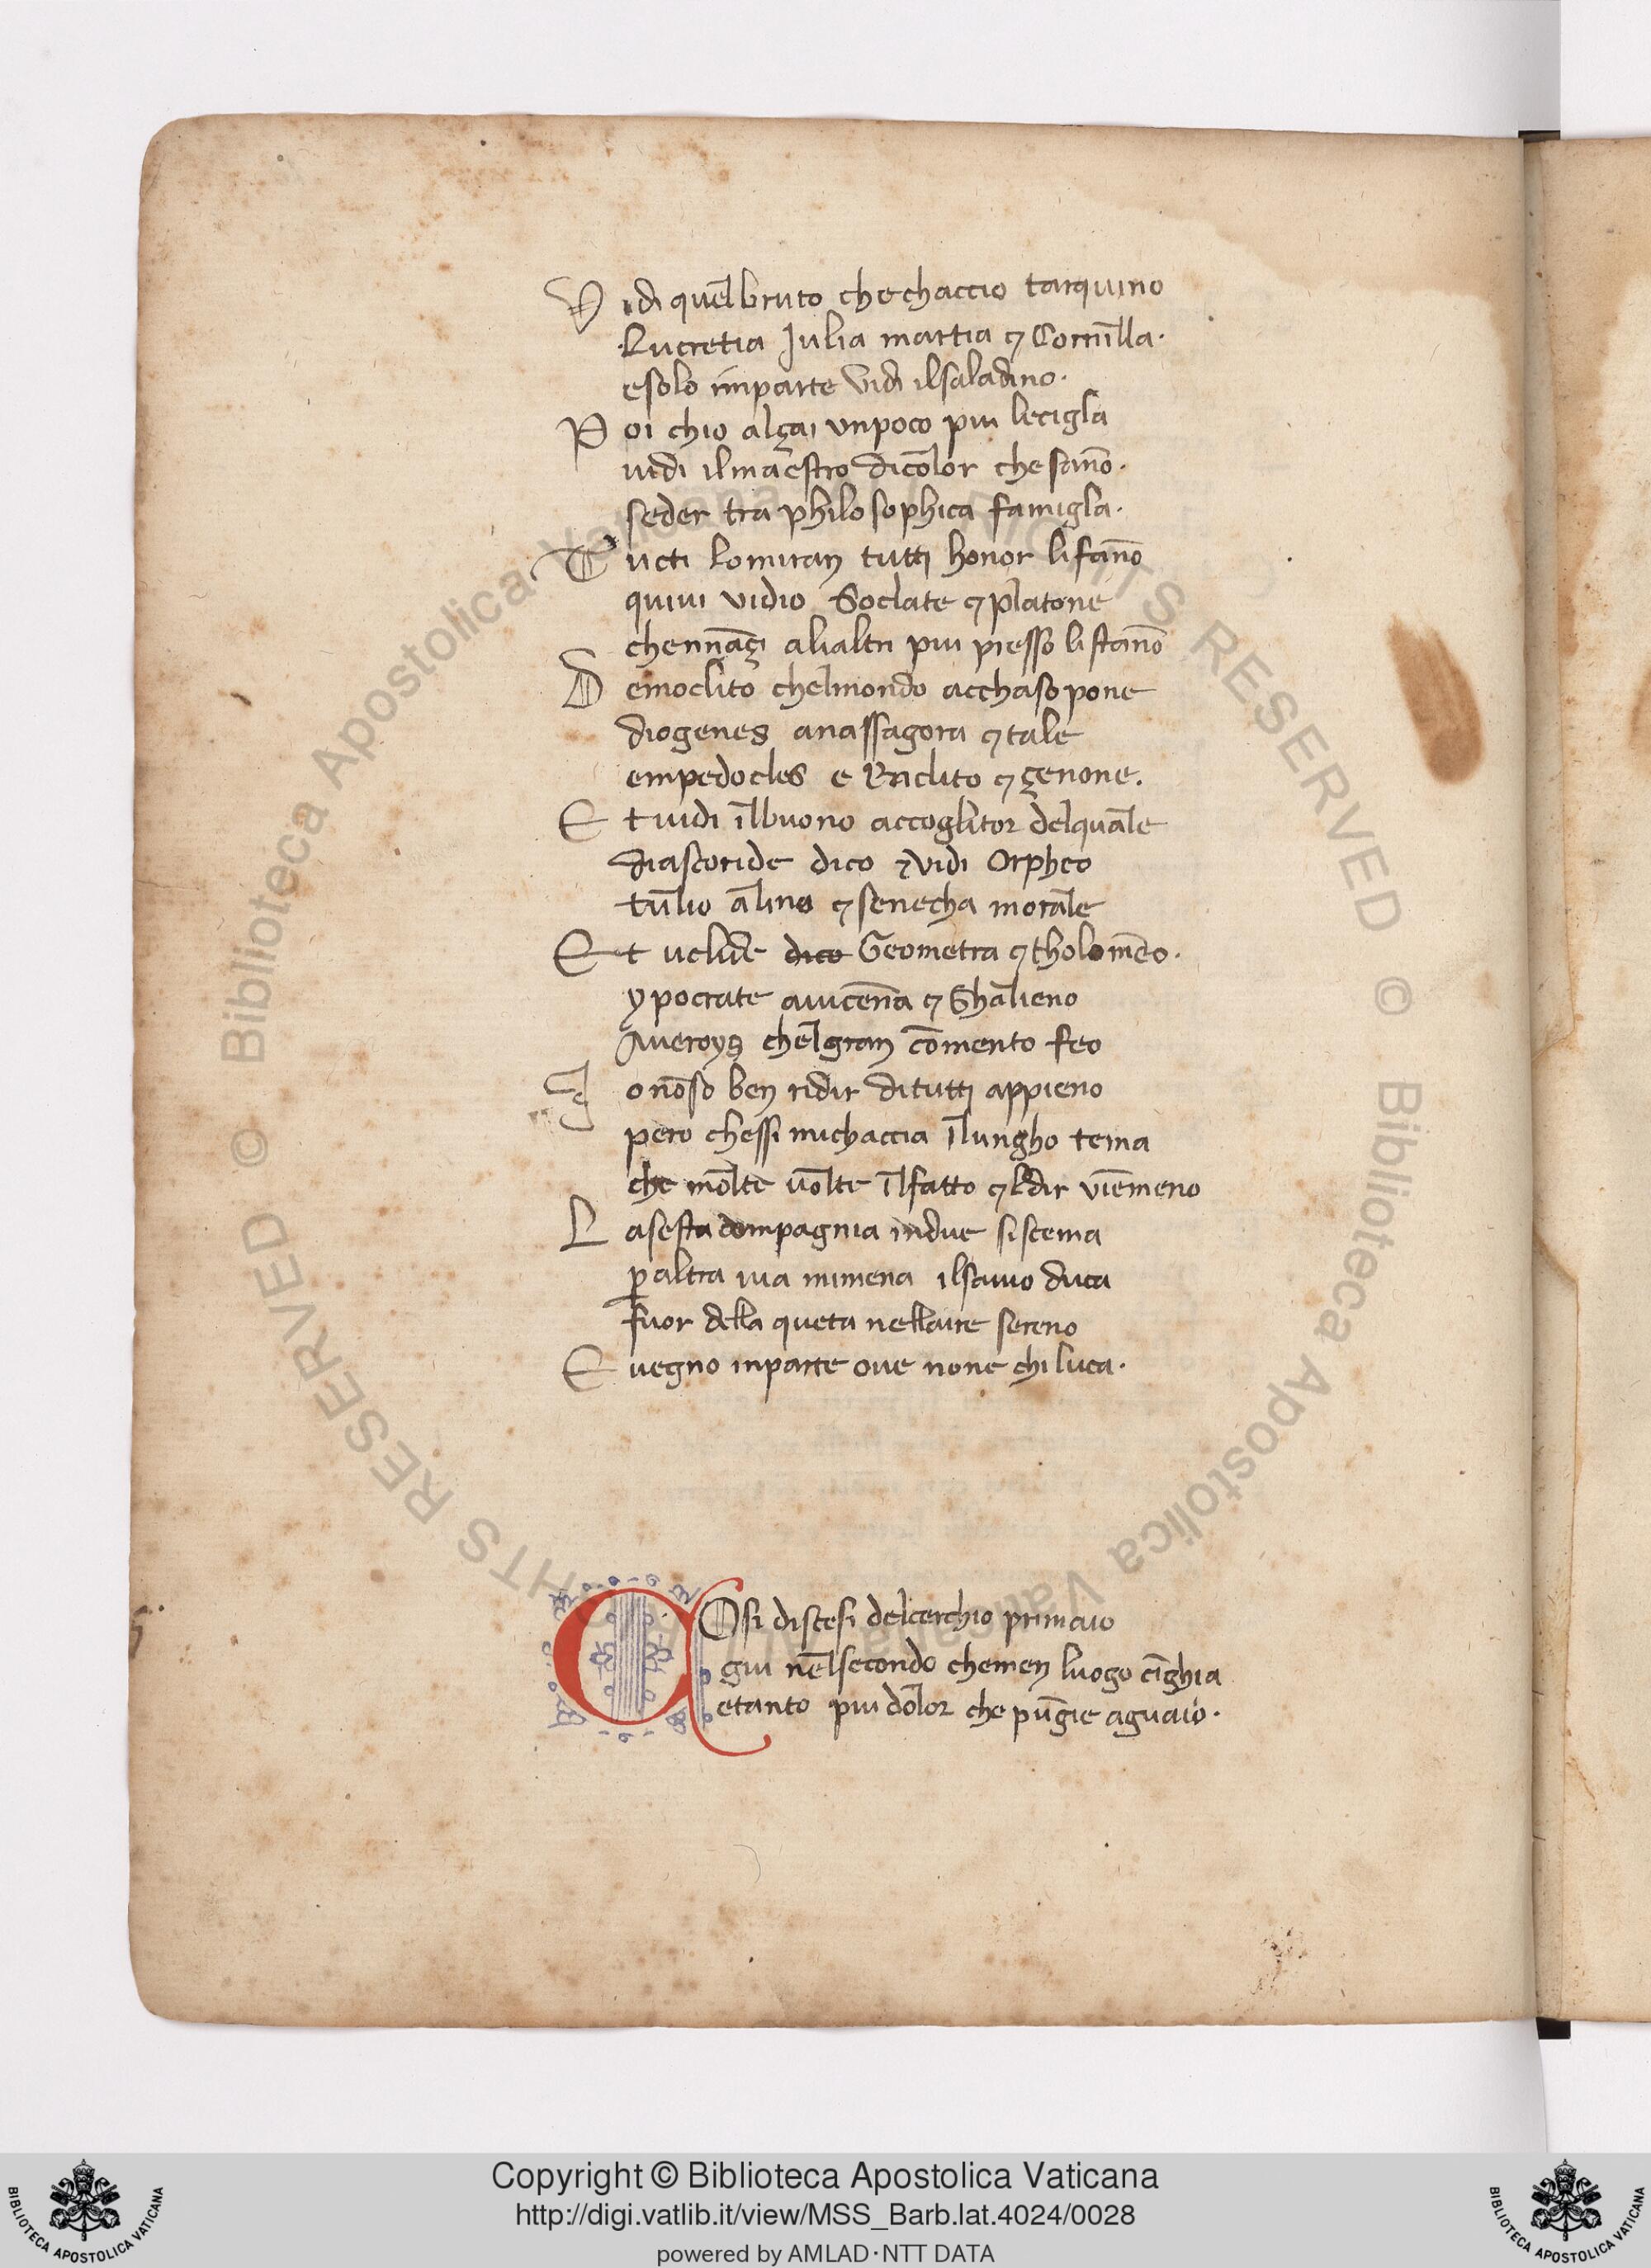 Vidi quel bruto che chaccio tarquino
Lucretia Julia martia ⁊ Cornilla·
e solo imparte vidi il saladino·
Poi chio alçai un poco piu le cigla
uidi il maestro di color che sanno·
seder tra philosophica famigla·
Tucti lo miran tutti honor li fanno
quiui vidio Soclate ⁊ platone
chennãçi ali altri piu presso li stanno
Democlito chel mondo acchaso pone
diogenes anassagora ⁊ tale
empedocles e Raclito ⁊ çenone.
Et uidi il buono accoglitor del quale
diascoride dico ⁊ vidi Orpheo
tulio alino ⁊ senecha morale
Et uclide dico Geometra ⁊ tholomẽo·
ypocrate auicẽna ⁊ Ghalieno
Aueroys chel gran cõmento feo
Io nõ so ben ridir di tutti appieno
pero chessi mi chaccia il lungho tema
che molte uolte il fatto ⁊ l dir vien meno
La sesta compagnia in due si scema
ꝑ altra uia mi mena il sauio duca
fuor della queta nellaire sereno
E uegno in parte oue none chi luca·
COsi discesi del cerchio primaio
giu nel secondo che men luogo cinghia
e tanto piu dolor che pungie a guaio·
© Biblioteca Apostolica Vaticana
RIGHTS RESERVED
© Biblioteca Apostolica Vaticana
RIGHTS RESERVED
Copyright © Biblioteca Apostolica Vaticana
http://digi.vatlib.it/view/MSS_Barb.lat.4024/0028
powered by AMLAD·NTT DATA
BIBLIOTECA APOSTOLICA VATICANA
BIBLIOTECA APOSTOLICA VATICANA